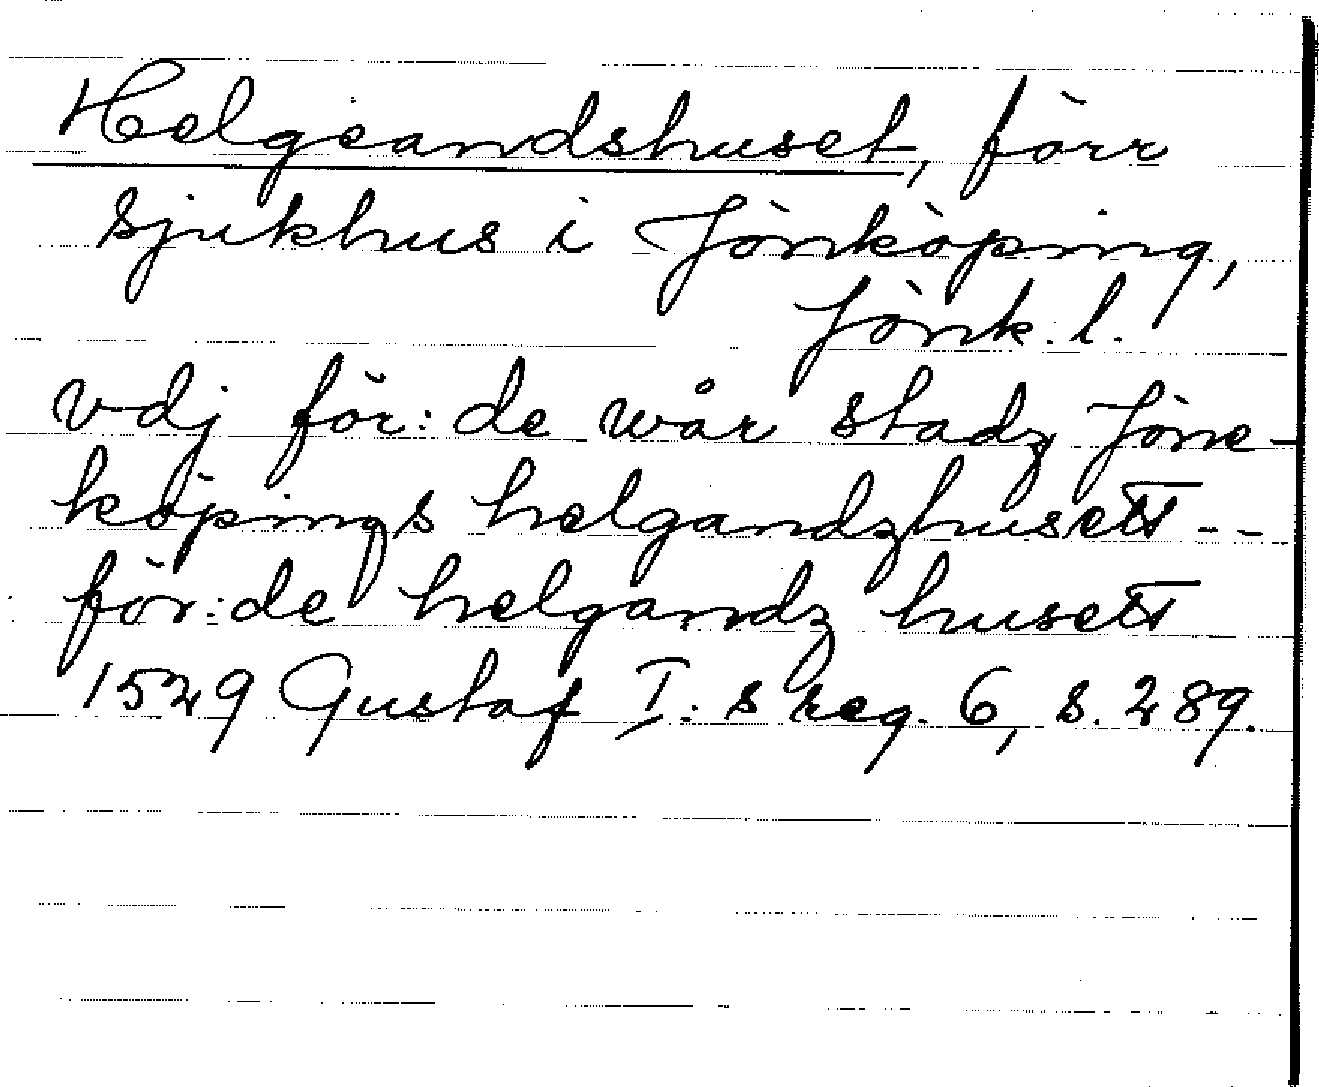 Helgeandshuset, förr
sjukhus i Jönköping,
Jönk. l.
vdj för:de wår stadz Jöne-
köpings helgandzhusett --
för:de helgandz husett
1529 Gustaf I:s reg. 6, s. 289.